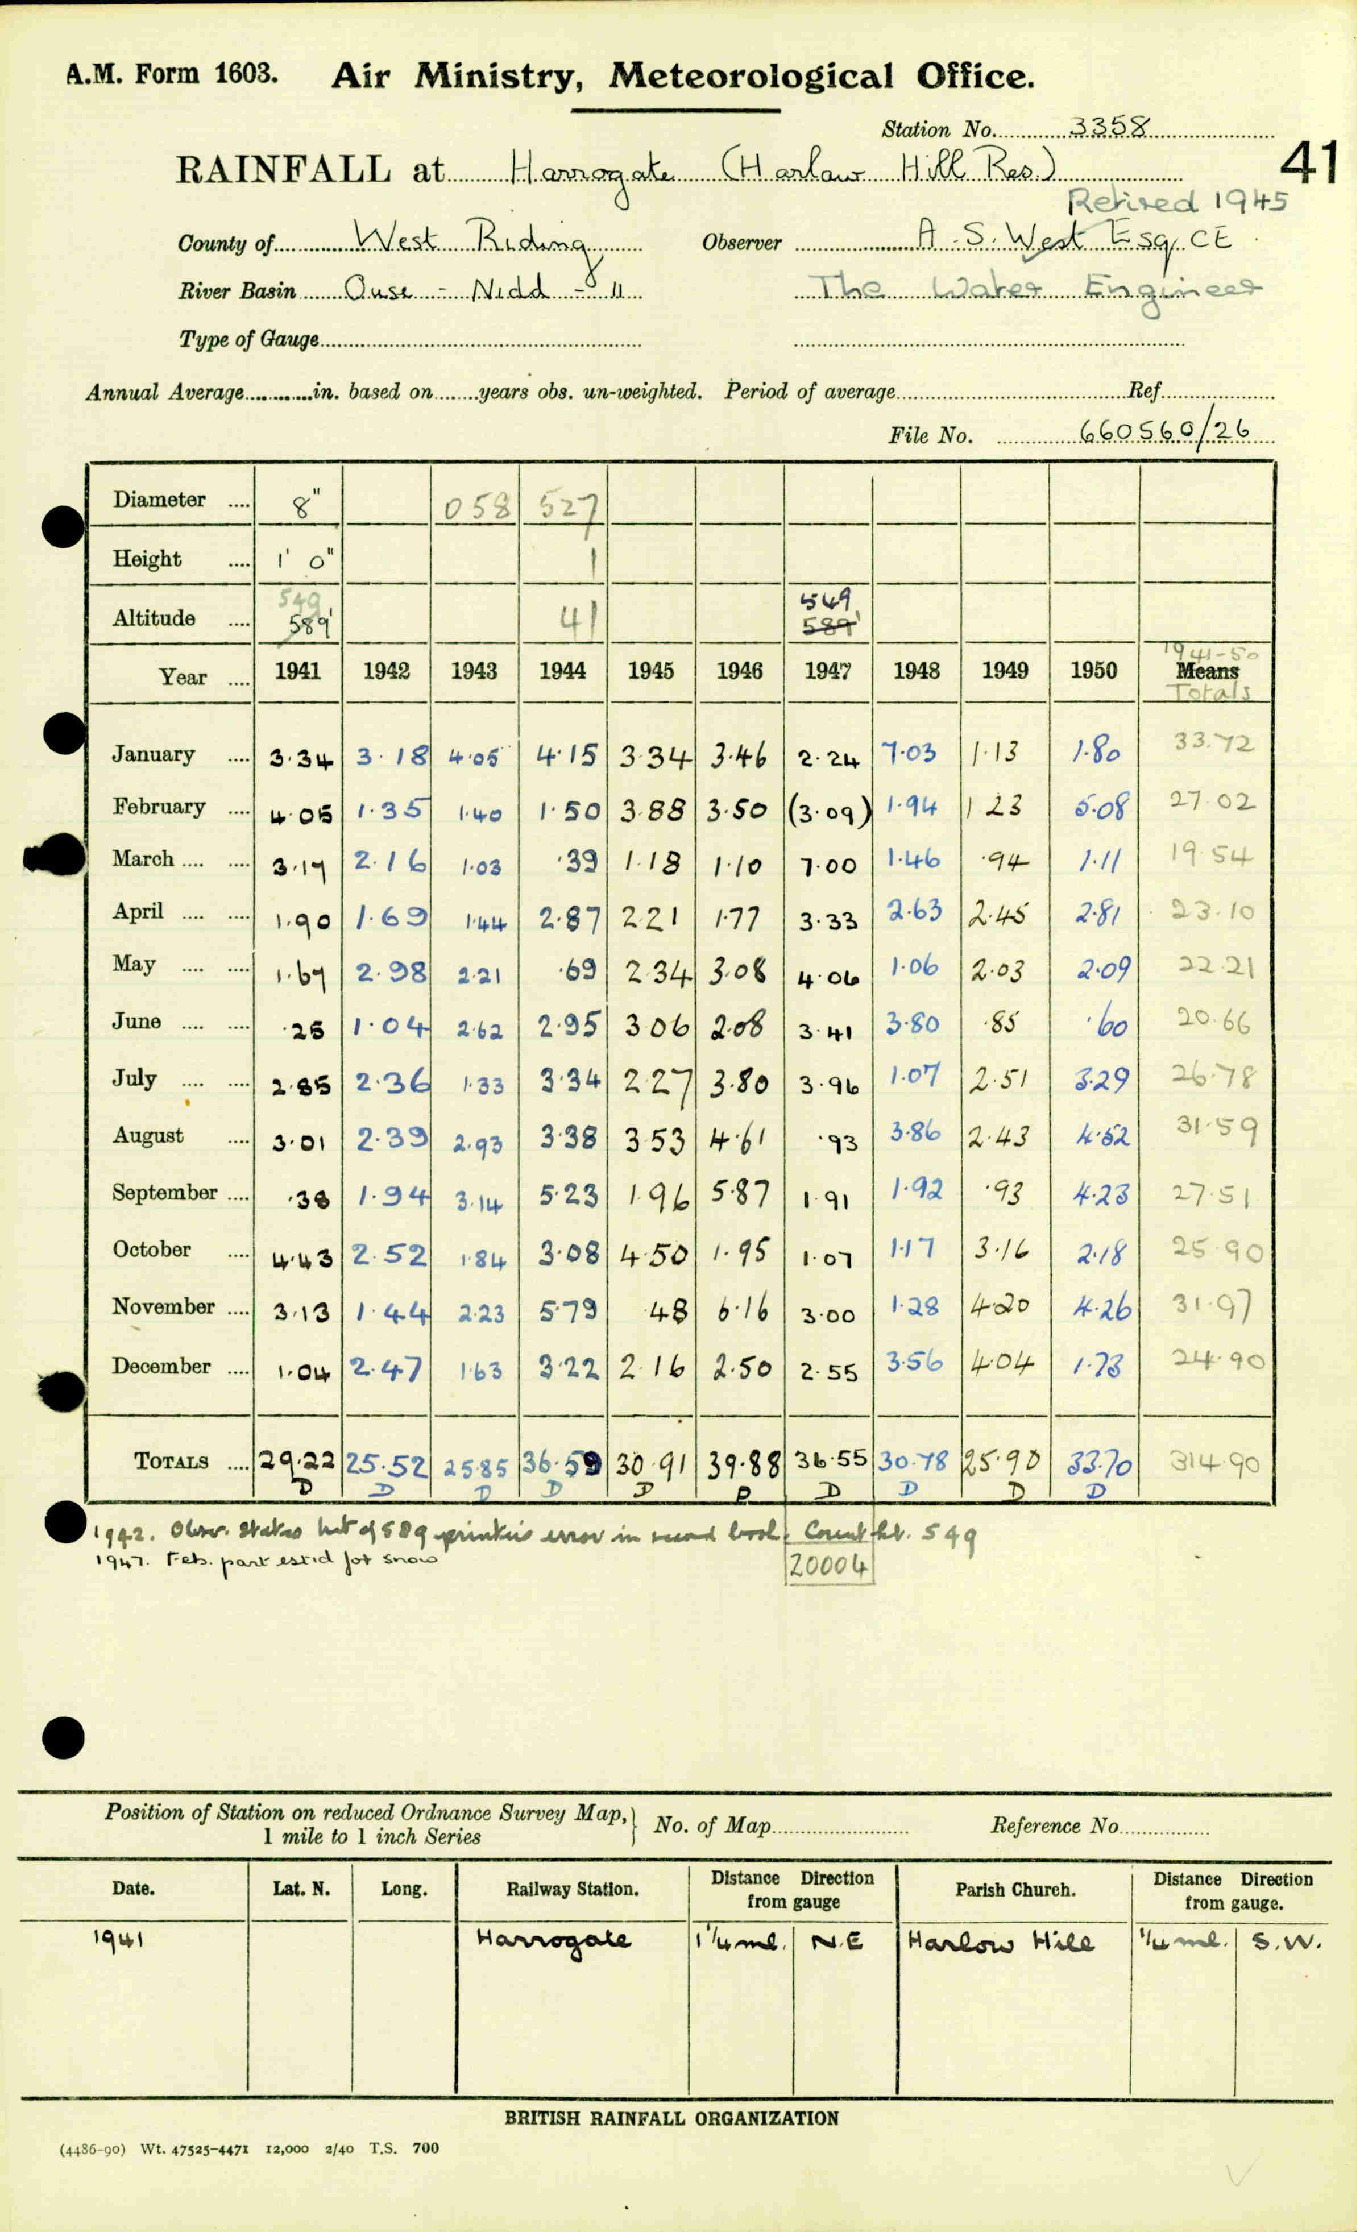 A.M. Form 1603. Air Ministry, Meteorological Office.
Station No. 3358
41
RAINFALL at Harrogate (Harlow Hill Res)
Retired 1945
County of West Riding Observer A. S. West Esq, CE
River Basin Ouse - Nidd - 11 The Water Engineer
Type of Gauge
Annual Average in. based on years obs. un-weighted. Period of average Ref
File No. 660560/26
Diameter .... 8" 058 527
Height .... 1' 0" 1
549 549
Altitude .... 589' 41 589'
1941-50
Year .... 1941 1942 1943 1944 1945 1946 1947 1948 1949 1950 Means
Totals
January .... 3.34 3.18 4.05 4.15 3.34 3.46 2.24 7.03 1.13 1.80 33.72
February .... 4.05 1.35 1.40 1.50 3.88 3.50 (3.09) 1.94 1 23 5.08 27.02
March .... .... 3.17 2.16 1.03 .39 1.18 1.10 7.00 1.46 .94 1.11 19.54
April .... .... 1.90 1.69 1.44 2.87 2.21 1.77 3.33 2.63 2.45 2.81 23.10
May .... .... 1.67 2.98 2.21 .69 2.34 3.08 4.06 1.06 2.03 2.09 22.21
June .... .... .25 1.04 2.62 2.95 3.06 2.08 3.41 3.80 .85 .60 20.66
July .... .... 2.85 2.36 1.33 3.34 2.27 3.80 3.96 1.07 2.51 3.29 26.78
August .... 3.01 2.39 2.93 3.38 3.53 4.61 .93 3.86 2.43 4.52 31.59
September .... .38 1.94 3.14 5.23 1.96 5.87 1.91 1.92 .93 4.23 27.51
October .... 4.43 2.52 1.84 3.08 4.50 1.95 1.07 1.17 3.16 2.18 25.90
November .... 3.13 1.44 2.23 5.79 48 6.16 3.00 1.28 4.20 4.26 31.97
December .... 1.04 2.47 1.63 3.22 2.16 2.50 2.55 3.56 4.04 1.73 24.90
TOTALS .... 29.22 25.52 25.85 36.59 30.91 39.88 36.55 30.78 25.90 33.70 314.90
D D D D D D D D D D
1942. Obsr. states ht of 589 printer's error in record book. Correct ht. 549
1947. Feb. part est'd for snow
20004
Position of Station on reduced Ordnance Survey Map, } No. of Map Reference No
1 mile to 1 inch Series
Date. Lat. N. Long. Railway Station. Distance from gauge Direction Parish Church. Distance from gauge. Direction
1941 Harrogate 1 1/4 ml. N.E Harlow Hill 1/4 ml. S.W.
BRITISH RAINFALL ORGANIZATION
(4486-90) Wt. 47525-4471 12,000 2/40 T.S. 700